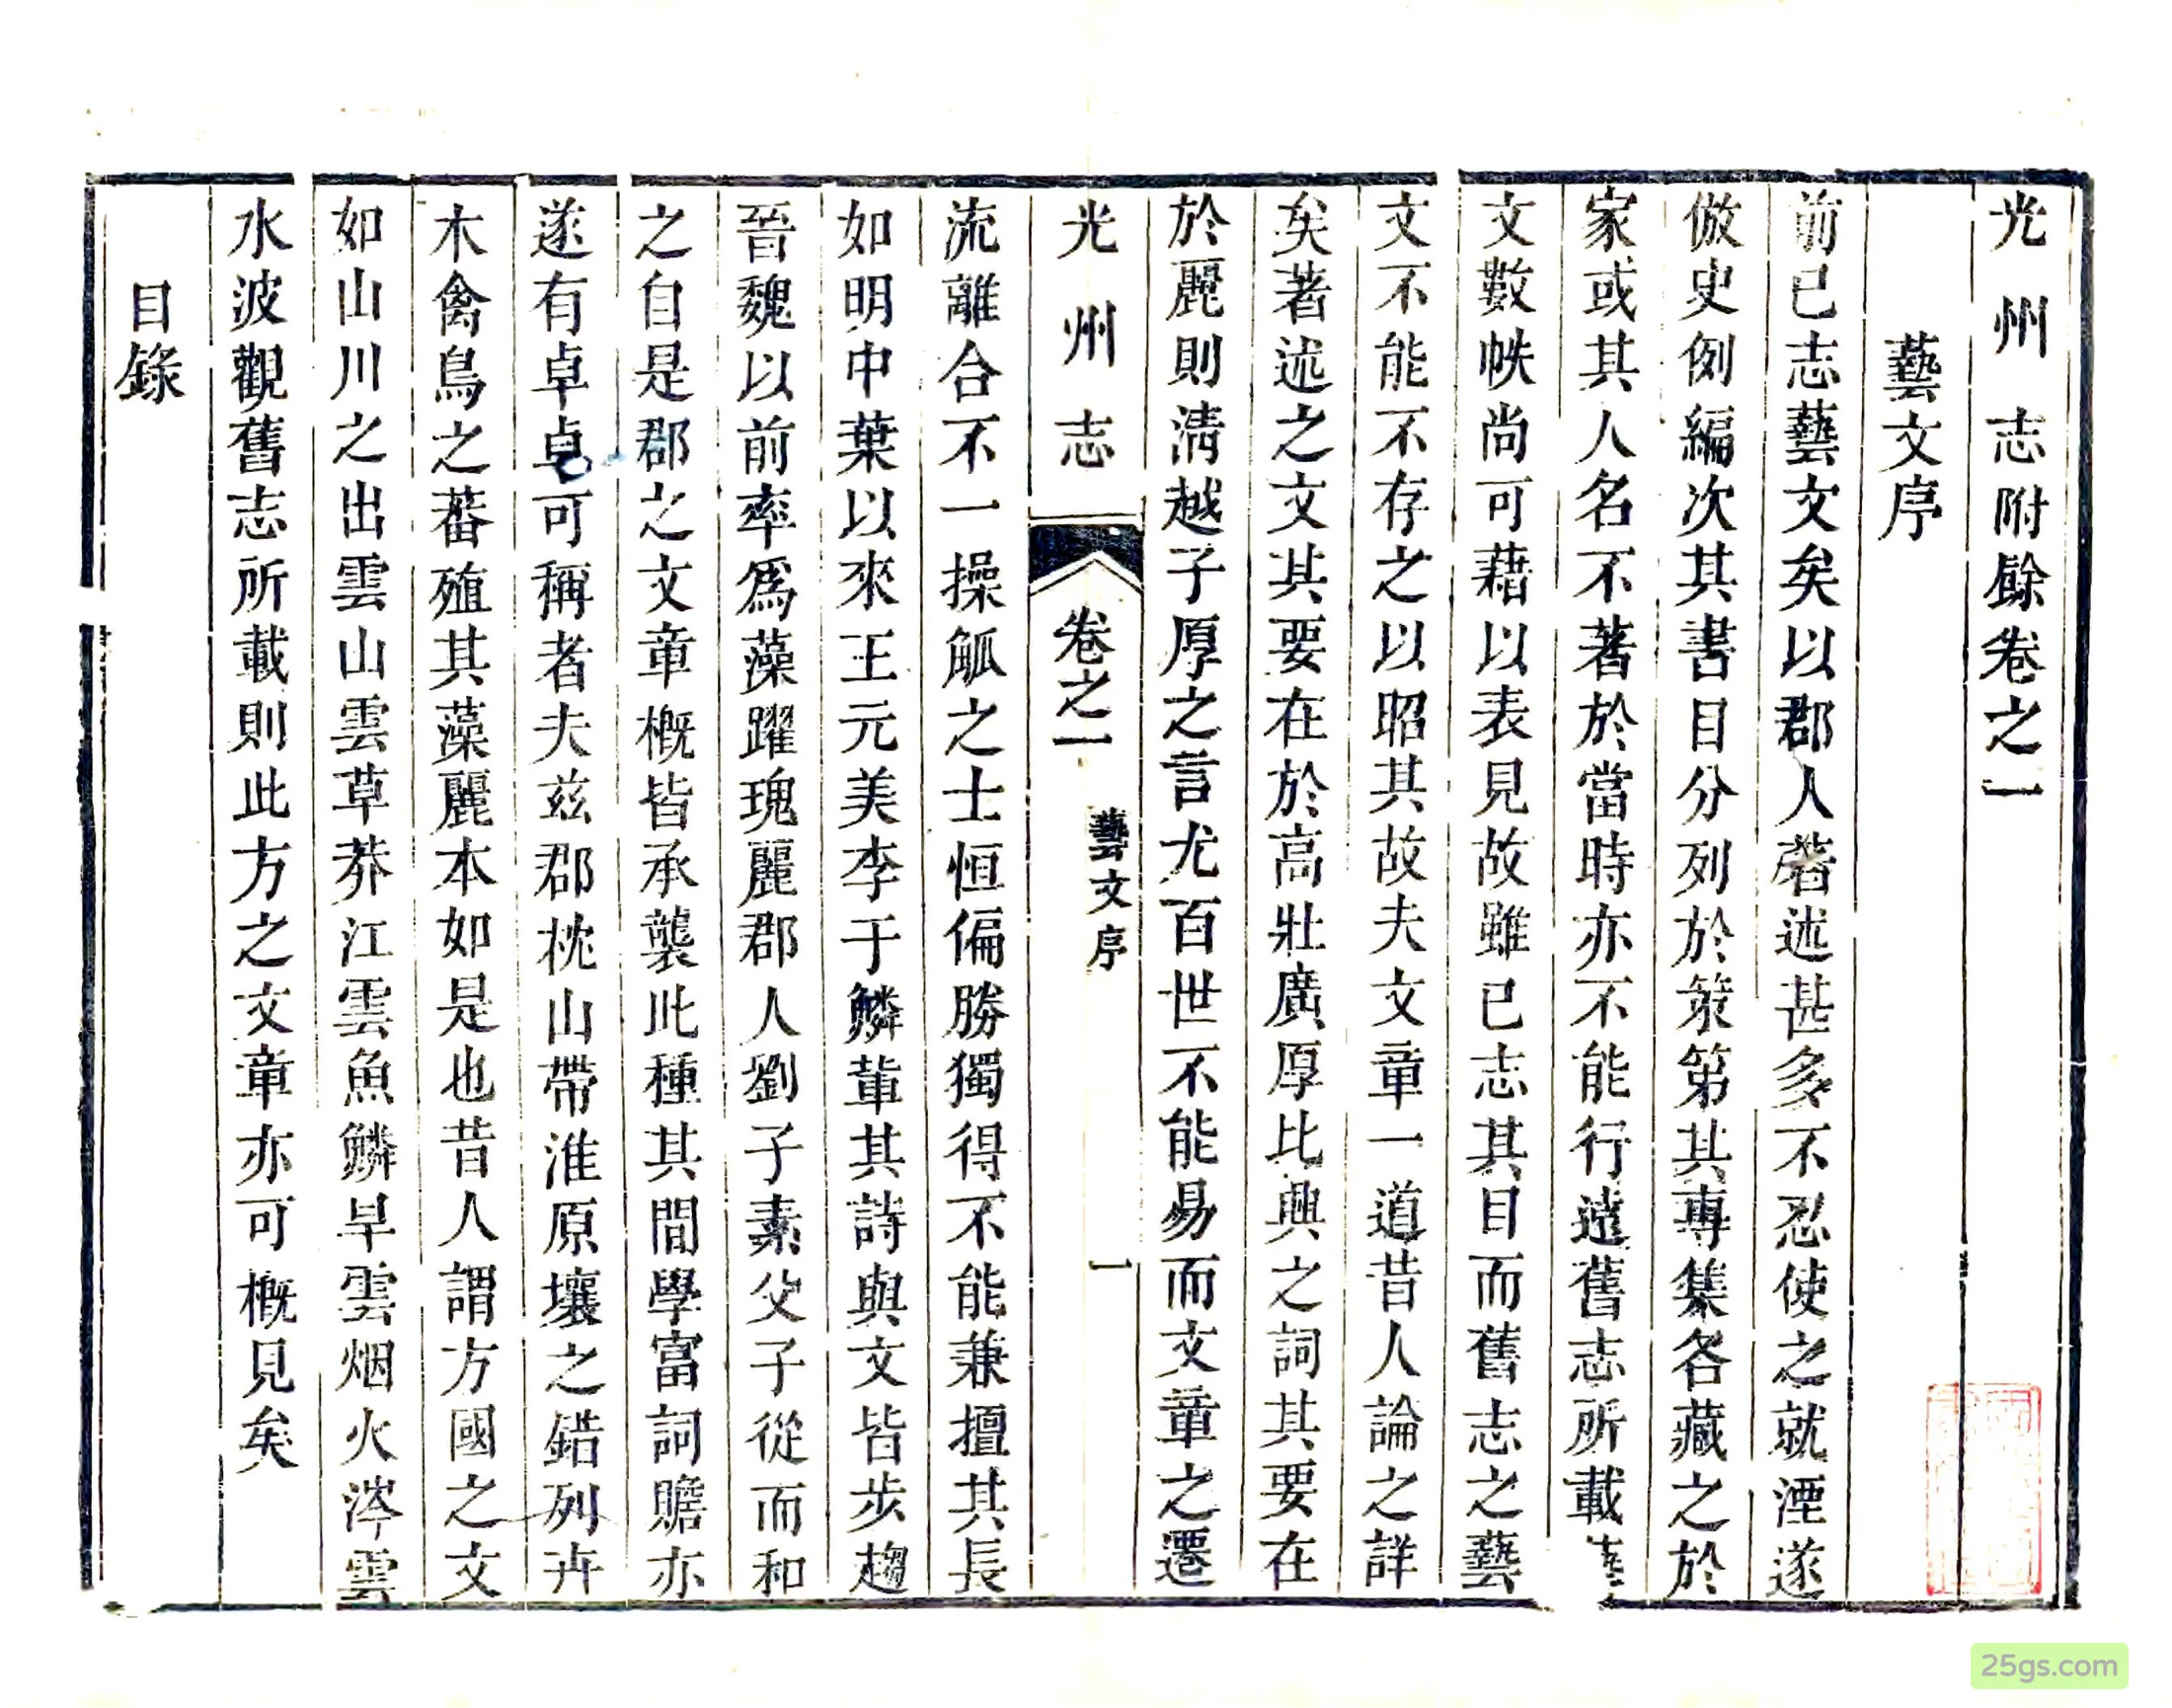 光州志附餘卷之一
藝文序
前已志藝文矣以郡人著述甚多不忍使之就湮遂
倣史例編次其書目分列於策第其專集各藏之於
家或其人名不著於當時亦不能行遠舊志所載
文數帙尚可藉以表見故雖已志其目而舊志之藝
文不能不存之以昭其故夫文章一道昔人論之詳
矣著述之文其要在於高壯廣厚比興之詞其要在
於麗則清越子厚之言尤百世不能易而文章之遷
光州志 卷之一 藝文序 一
流離合不一操觚之士恒偏勝獨得不能兼擅其長
如明中葉以來王元美李于鱗輩其詩與文皆步趨
晉魏以前率爲藻躍瑰麗郡人劉子素父子從而和
之自是郡之文章概皆承襲此種其間學富詞贍亦
遂有卓卓可稱者夫兹郡枕山帶淮原壤之錯列卉
木禽鳥之蕃殖其藻麗本如是也昔人謂方國之文
如山川之出雲山雲草莽江雲魚鱗旱雲烟火涔雲
水波觀舊志所載則此方之文章亦可概見矣
目錄
25gs.com